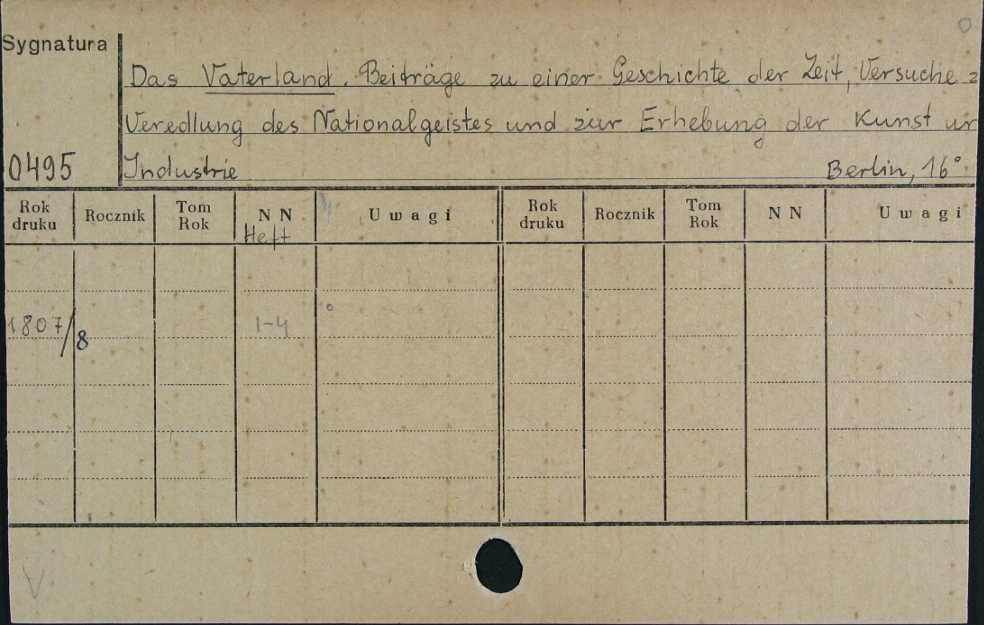 Sygnatura
Das Vaterland. Beiträge zu einer Geschichte der Zeit, Versuche z
Veredlung des Nationalgeistes und zur Erhebung der Kunst un
0495 Industrie Berlin, 16°
Rok druku Rocznik Tom Rok NN Heft Uwagi Rok druku Rocznik Tom Rok NN Uwagi
1807/8 1-4